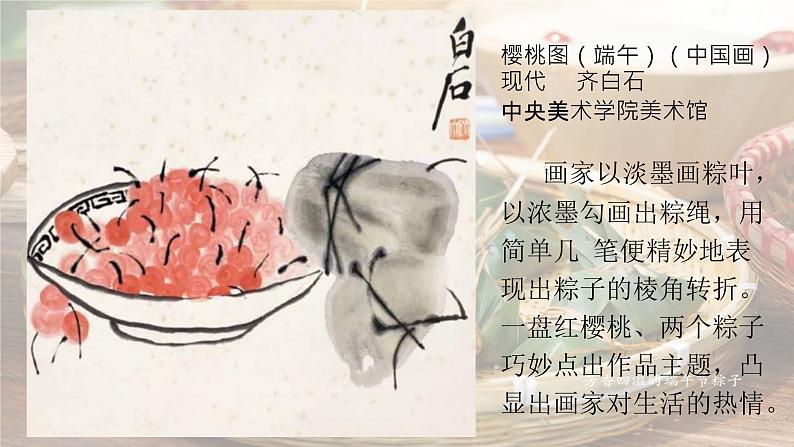 白石
樱桃图（端午）（中国画）
现代 齐白石
中央美术学院美术馆
画家以淡墨画粽叶，
以浓墨勾画出粽绳，用
简单几 笔便精妙地表
现出粽子的棱角转折。
一盘红樱桃、两个粽子
巧妙点出作品主题，凸
芳香四溢的端午节粽子
显出画家对生活的热情。